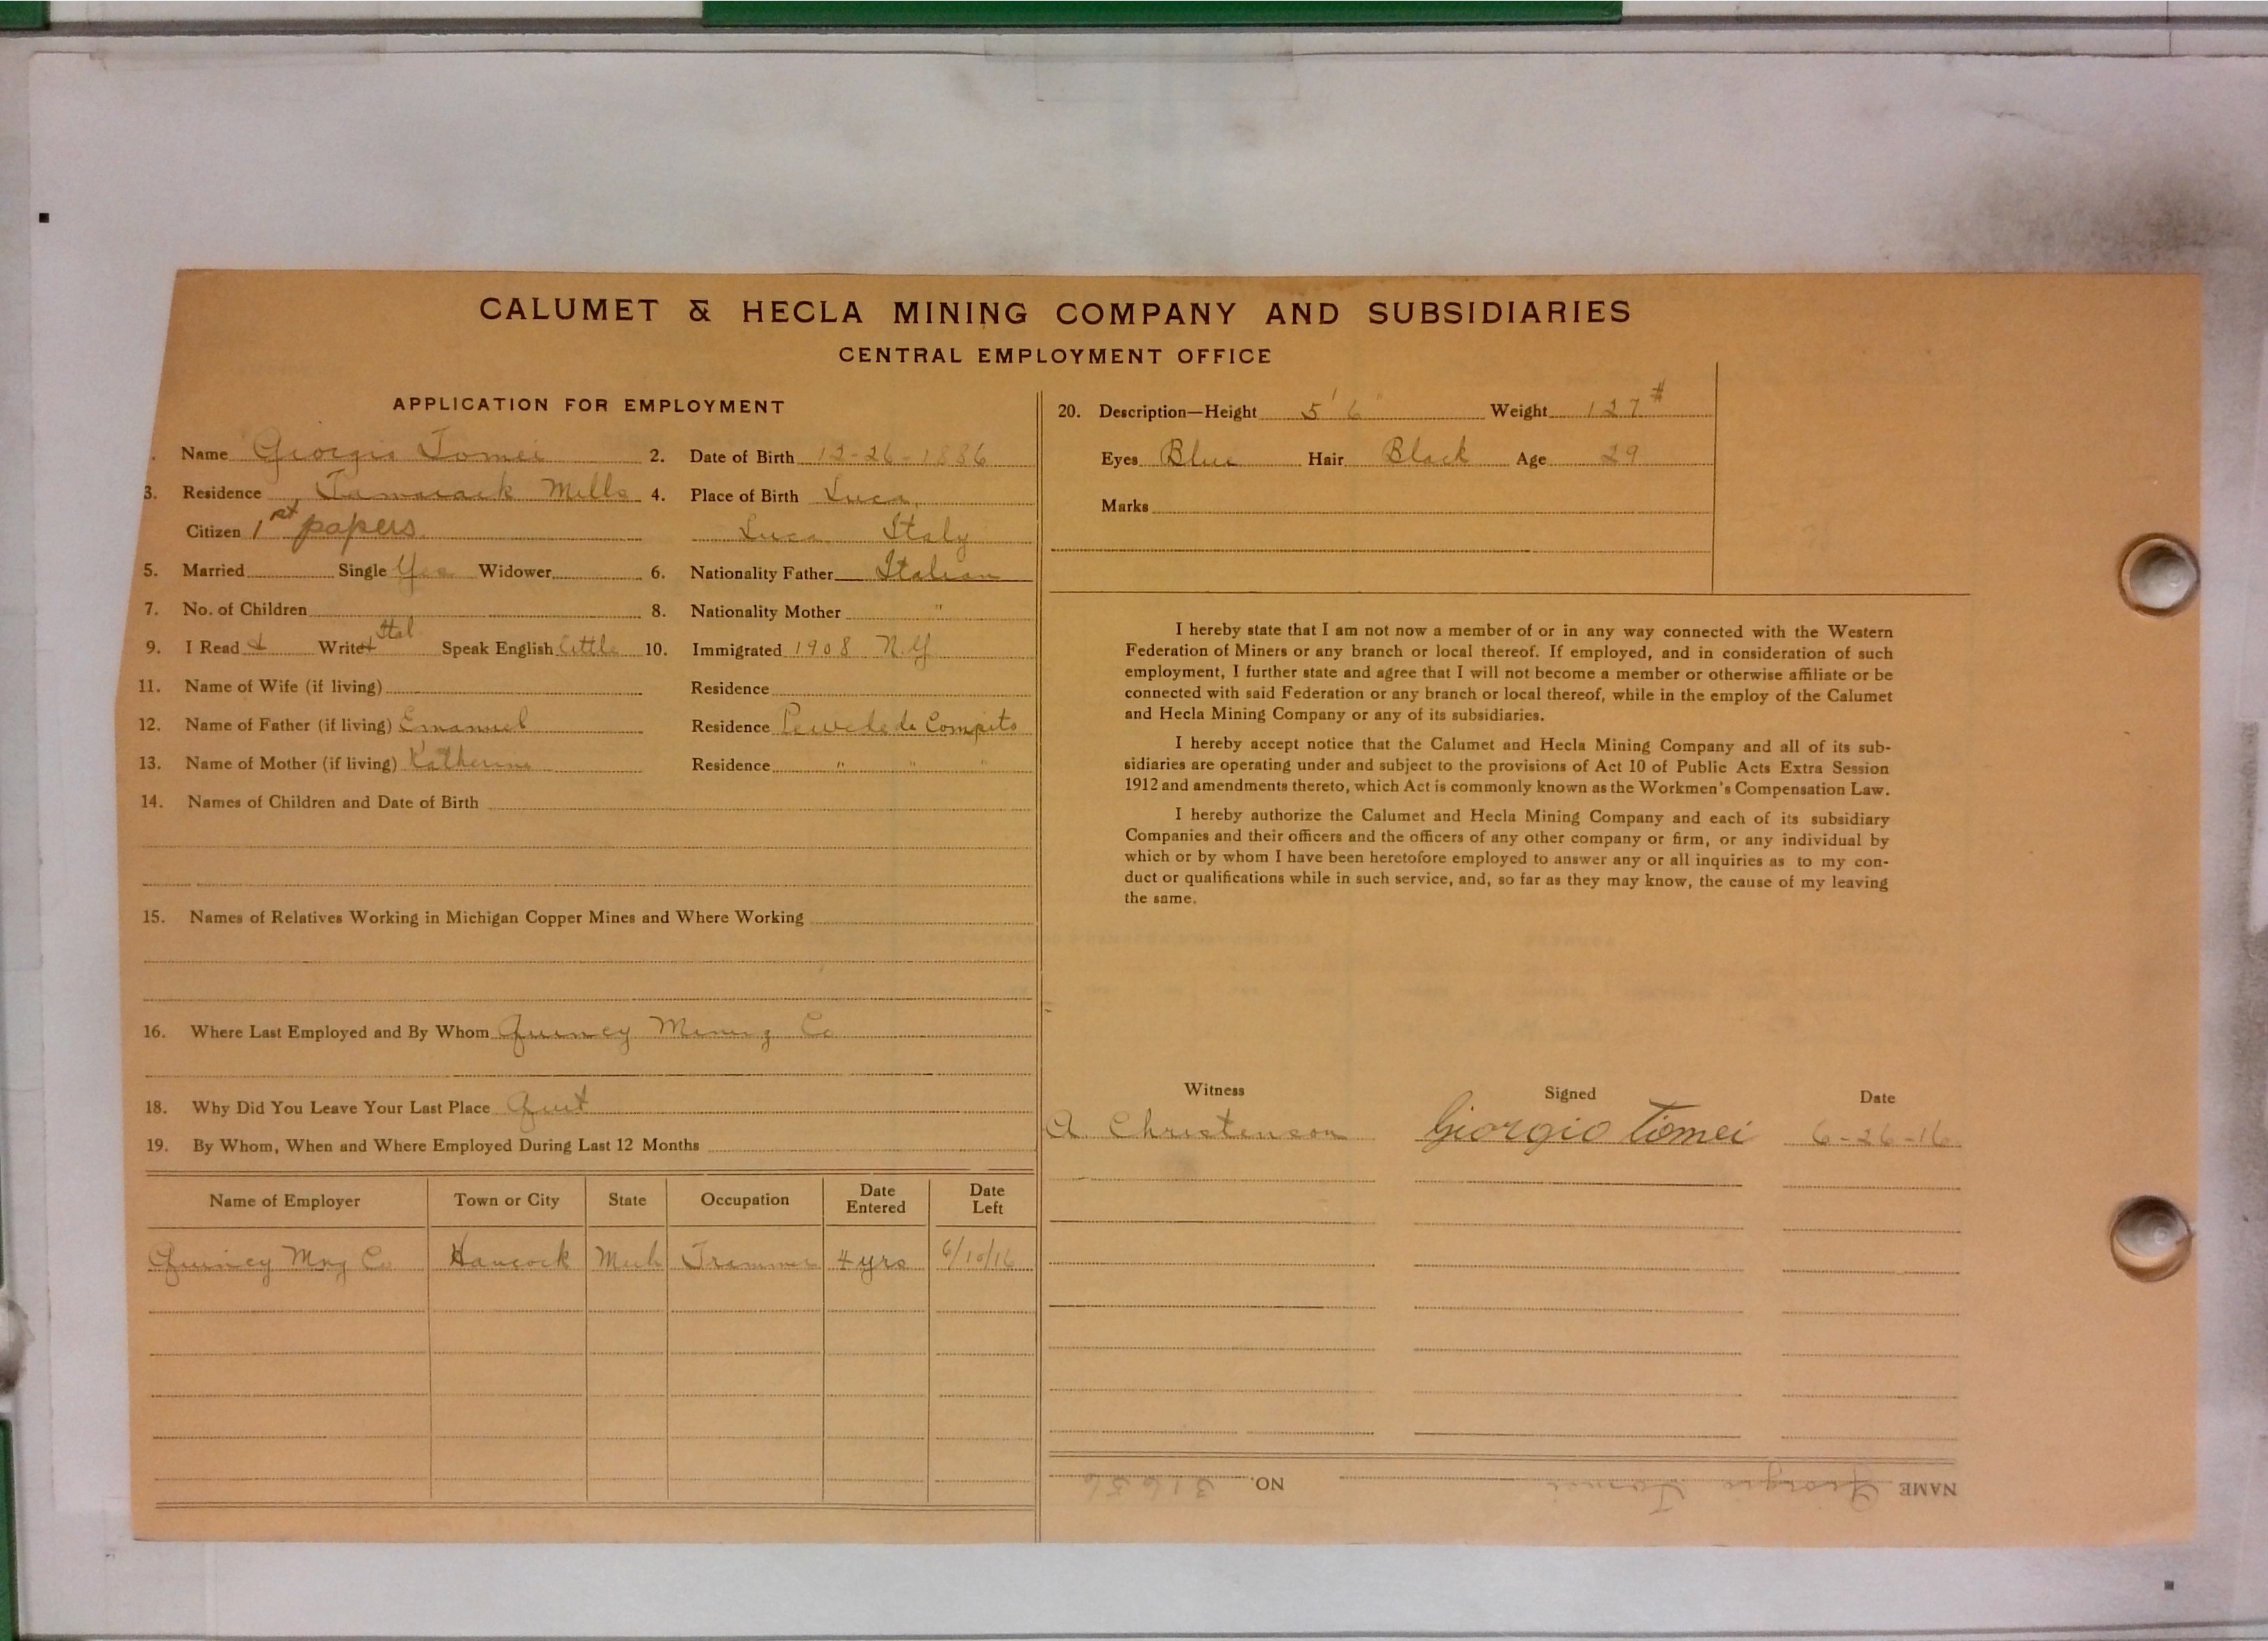 CALUMET & HECLA MINING COMPANY AND SUBSIDIARIES
CENTRAL EMPLOYMENT OFFICE
APPLICATION FOR EMPLOYMENT
. Name Giorgio Tomei 2. Date of Birth 12-26-1886
3. Residence Tamarack Mills 4. Place of Birth Luca,
Citizen 1st papers. Luca Italy
5. Married Single Yes Widower 6. Nationality Father Italian
7. No. of Children 8. Nationality Mother "
9. I Read + Write + Ital Speak English little 10. Immigrated 1908 N.Y.
11. Name of Wife (if living) Residence
12. Name of Father (if living) Emanuel Residence de Compito
13. Name of Mother (if living) Katherine Residence " " "
14. Names of Children and Date of Birth
15. Names of Relatives Working in Michigan Copper Mines and Where Working
16. Where Last Employed and By Whom Quincy Mining Co
18. Why Did You Leave Your Last Place Quit
19. By Whom, When and Where Employed During Last 12 Months
Name of Employer Town or City State Occupation Date Entered Date Left
Quincy Mng Co Hancock Mich Trammer 4 yrs 6/10/16
20. Description—Height 5' 6" Weight 127#
Eyes Blue Hair Black Age 29
Marks
I hereby state that I am not now a member of or in any way connected with the Western
Federation of Miners or any branch or local thereof. If employed, and in consideration of such
employment, I further state and agree that I will not become a member or otherwise affiliate or be
connected with said Federation or any branch or local thereof, while in the employ of the Calumet
and Hecla Mining Company or any of its subsidiaries.
I hereby accept notice that the Calumet and Hecla Mining Company and all of its sub-
sidiaries are operating under and subject to the provisions of Act 10 of Public Acts Extra Session
1912 and amendments thereto, which Act is commonly known as the Workmen's Compensation Law.
I hereby authorize the Calumet and Hecla Mining Company and each of its subsidiary
Companies and their officers and the officers of any other company or firm, or any individual by
which or by whom I have been heretofore employed to answer any or all inquiries as to my con-
duct or qualifications while in such service, and, so far as they may know, the cause of my leaving
the same.
Witness Signed Date
A Christenson Giorgio Tomei 6-26-16
NAME Giorgio Tomei NO. 31656